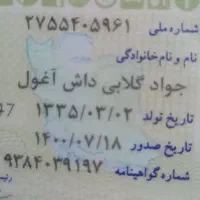 شماره ملی ۲۷۵۵۴۰۵۹۶۱
نام و نام خانوادگی
جواد گلابی داش آغول
تاریخ تولد ۱۳۳۵/۰۳/۰۲
تاریخ صدور ۱۴۰۰/۰۷/۱۸
شماره گواهینامه ۹۳۸۴۰۳۹۱۹۷